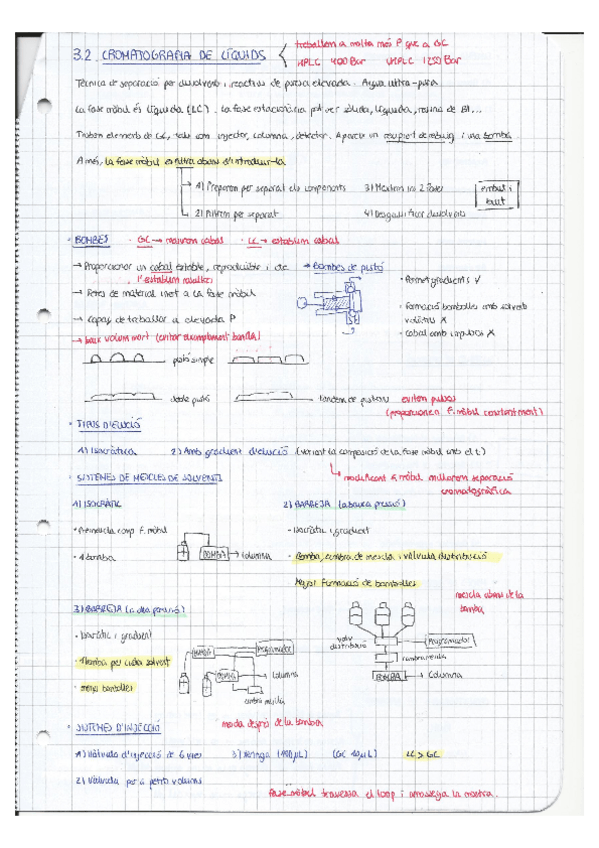 3.2. CROMATOGRAFIA DE LÍQUIDS
treballem a molta més P que a GC
HPLC 400 Bar UHPLC 1250 Bar
Tècnica de separació per dissolvents i reactius de puresa elevada. Aigua ultra-pura
La fase mòbil és líquida (LC). La fase estacionària pot ser sòlida, líquida, resina de BI,...
Trobem elements de GC, tals com injector, columna, detector. Apareix un recipient de rebuig i una bomba.
A més, la fase mòbil es filtra abans d'introduir-la
1) Preparem per separat els components
3) Mesclem les 2 fases
embut i buit
2) Filtrem per separat
4) Desgasifficar dissolvents
· BOMBES · GC → mantenim cabal · LC → establim cabal
→ Proporcionar un cabal estable, reproduïble i cte
l'establim nosaltres
→ Bombes de pistó
· Permet gradients ✓
→ Fetes de material inert a la fase mòbil
· Formació bombolles amb solvents volàtils X
→ capaç de treballar a elevada P
· Cabal amb impulsos X
→ baix volum mort (evitar eixamplament bandes)
pistó simple
doble pistó
tàndem de pistons
eviten pulsos
(proporcionen f. mòbil constantment)
· TIPUS D'ELUCIÓ
1) Isocràtica
2) Amb gradient d'elució (variant la composició de la fase mòbil amb el t)
modificant f. mòbil millorem separació cromatogràfica
· SISTEMES DE MESCLES DE SOLVENTS
1) ISOCRÀTIC
2) BARREJA (a baixa pressió)
· Premescla comp. f. mòbil
· Isocràtic i gradient
· 1 bomba
BOMBA → Columna
· Bomba, cambra de mescla i vàlvula distribució
Major formació de bombolles
mescla abans de la bomba
3) BARREJA (a alta pressió)
· Isocràtic i gradient
· 1 bomba per cada solvent
· menys bombolles
BOMBA
Programador
BOMBA
→ Columna
cambra mescla
valv. distribució
Programador
cambra mescla
BOMBA → Columna
mescla després de la bomba
· SISTEMES D'INJECCIÓ
1) Vàlvula d'injecció de 6 vies
3) Xeringa (100 μL)
(GC 10 μL)
LC > GC
2) Vàlvula per a petits volums
fase mòbil travessa el loop i arrossega la mostra.